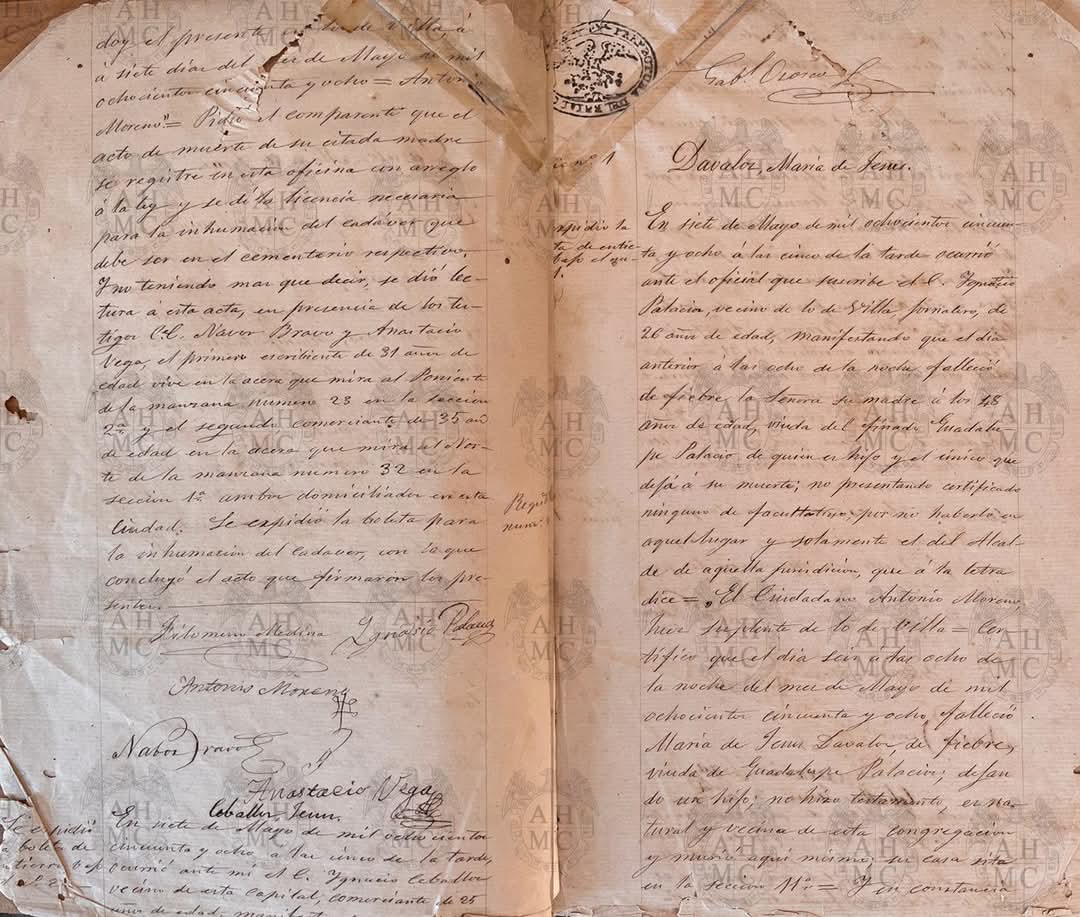 doy el presente
á siete dias del mes de Mayo de mil
ochocientos cincuenta y ocho = Antonio
Moreno" = Pidió el comparente que el
acto de muerte de su citada madre
se registre en esta oficina con arreglo
á la ley y se dé la licencia necesaria
para la inhumacion del cadáver que
debe ser en el cementerio respectivo.
Y no teniendo mas que decir, se dió lec-
tura á esta acta, en presencia de los tes-
tigos C.C. Navor Bravo y Anastacio
Vega, el primero escribiente de 31 años de
edad vive en la acera que mira al Poniente
de la manzana numero 23 en la seccion
2ª y el segundo comerciante de 35 añ
de edad en la acera que mira al Nor-
te de la manzana numero 32 en la
seccion 1ª ambos domiciliados en esta
Ciudad. Se expidió la boleta para
la inhumacion del cadaver, con lo que
concluyó el acto que firmaron los pre-
sentes.
Filomeno Medina Ygnasio Palacios
Antonio Moreno
Nabor Bravo
Anastacio Vega
Ceballos, Jesus.
Se expidió
la boleta de
En siete de Mayo de mil ochocientos
cincuenta y ocho a las cinco de la tarde,
ocurrió ante mi el C. Ygnacio Ceballos
vecino de esta capital, comerciante de 25
años de edad,
Gab.l Orosco
nº 1
Davalos, María de Jesus.
En siete de Mayo de mil ochocientos cincuen-
ta y ocho á las cinco de la tarde ocurrió
ante el oficial que suscribe el C. Ygnacio
Palacios, vecino de lo de Villa jornalero, de
26 años de edad, manifestando que el dia
anterior á las ocho de la noche falleció
de fiebre la Señora su madre á los 48
años de edad, viuda del finado Guadalu-
pe Palacio de quien es hijo y el único que
dejó á su muerte; no presentando certificado
ninguno de facultativo, por no haberlo en
aquel lugar y solamente el del Alcal-
de de aquella jurisdicion, que á la letra
dice = "El Ciudadano Antonio Moreno,
Juez suplente de lo de Villa = Cer-
tifico que el dia seis a las ocho de
la noche del mes de Mayo de mil
ochocientos cincuenta y ocho, falleció
María de Jesus Davalos de fiebre,
viuda de Guadalupe Palacios; dejan-
do un hijo; no hizo testamento, es na-
tural y vecina de esta congregacion
y murió aqui mismo; su casa sita
en la seccion 11ª = Y en constancia
AH
MC